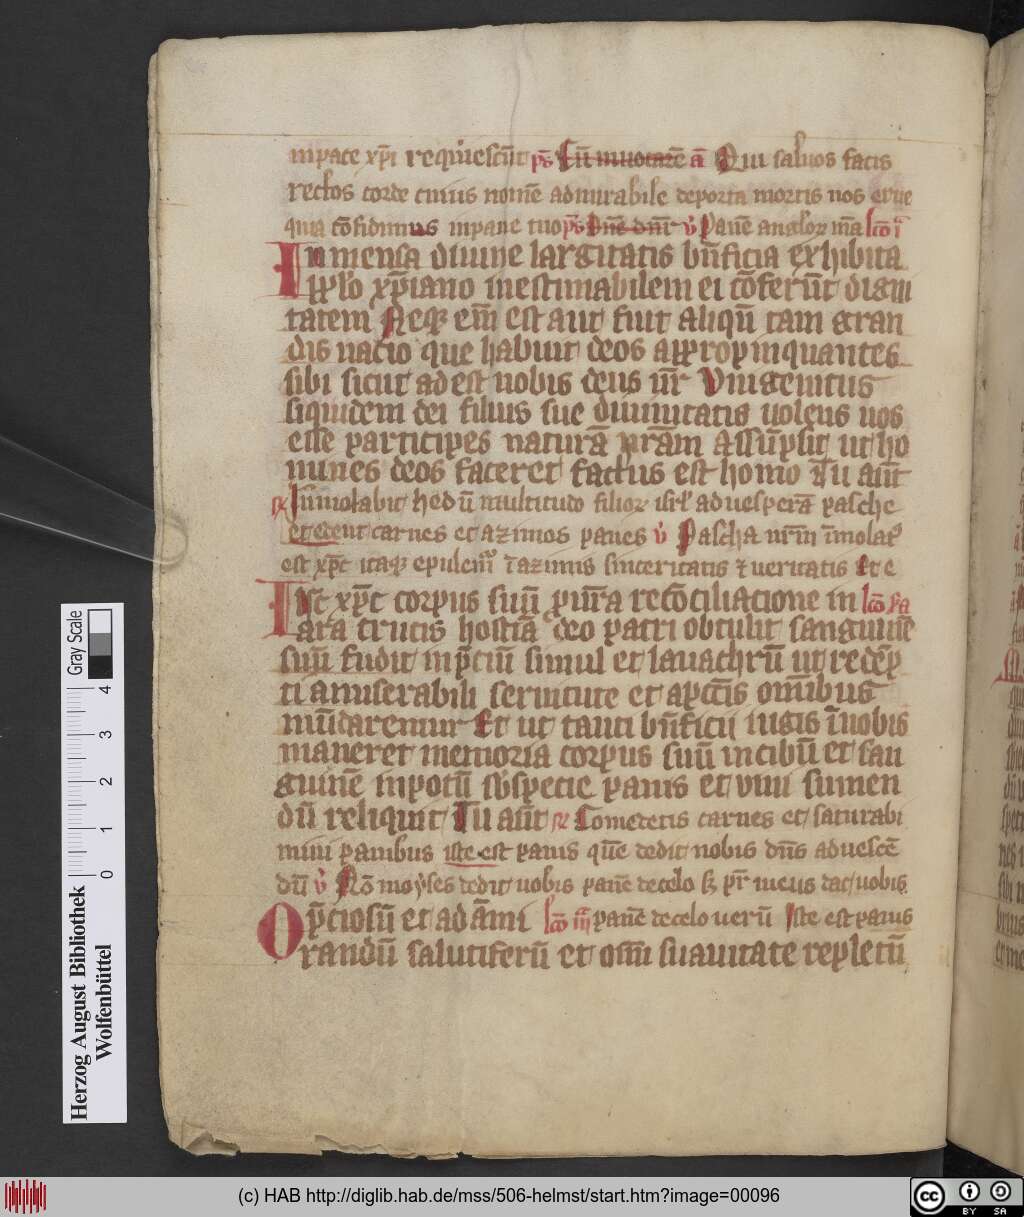 inpace xp̄i requiescūt ps̄ Cū inuocarē ā Qui saluos facis
rectos corde cuius nomē admirabile deporta mortis nos erue
quia cōfidimus inpane tuo ps̄ Dn̄e dn̄r v̇ Panē anglor̄ m̄a lc̄o i
Inmensa diuine largitatis bn̄ficia exhibita
pp̄lo xp̄iano inestimabilem ei cōferūt digni
tatem Neqz em̄ est aut fuit aliqū tam gran
dis natio que habuit deos appropinquantes
sibi sicut adest nobis deus nr̄ Vnigenitus
siquidem dei filius sue diuinitatis uolens nos
esse participes naturā nrām assūpsit ut ho
mines deos faceret factus est homo Tu aūt
℞ Immolabit hedū multitudo filior̄ isrl̄ aduesperā pasche
et edent carnes et azimos panes v̇ Pascha nrm̄ īmolat̄
est xp̄c itaqz epulem̄ ī azimis sinceritatis ⁊ ueritatis Et e
Iste xp̄c corpus suū p̄ nr̄a recōciliatione in lc̄o s̄a
ara crucis hostiā deo patri obtulit sanguinē
suū fudit inp̄ciū simul et lauachrū ut redēp
ti amiserabili seruitute et apcc̄is om̄ibus
mūdaremur Et ut tanti bn̄ficij iugis īnobis
maneret memoria corpus suū incibū et san
guinē inpotū sb̄specie panis et uini sumen
dū reliquit Tu aūt ℞ Comedetis carnes et saturabi
mini panibus iste est panis quē dedit nobis dn̄s aduescē
dū v̇ Nō moyses dedit uobis panē decelo sz pr̄ meus dat uobis
Op̄ciosū et adām̄i lc̄o iii panē decelo uerū Iste est panis
randū salutiferū et om̄i suauitate repletū
Gray Scale
0 1 2 3 4
Herzog August Bibliothek
Wolfenbüttel
(c) HAB http://diglib.hab.de/mss/506-helmst/start.htm?image=00096
cc BY SA